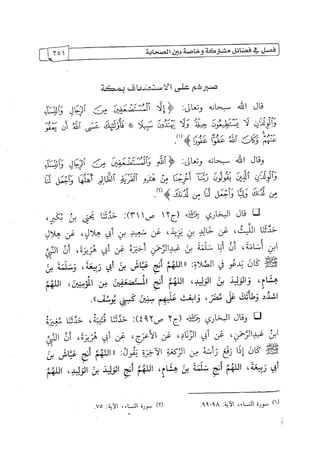 فصل في فضائل مشتركة وخاصة بين الصحابة ٢٥١
صبرهم على الاستضعاف بمكة
قال الله سبحانه وتعالى: ﴿إِلَّا الْمُسْتَضْعَفِينَ مِنَ الرِّجَالِ وَالنِّسَاءِ
وَالْوِلْدَانِ لَا يَسْتَطِيعُونَ حِيلَةً وَلَا يَهْتَدُونَ سَبِيلًا * فَأُولَٰئِكَ عَسَى اللَّهُ أَنْ يَعْفُوَ
عَنْهُمْ وَكَانَ اللَّهُ عَفُوًّا غَفُورًا﴾(١).
وقال الله سبحانه وتعالى: ﴿اللَّهِ وَالْمُسْتَضْعَفِينَ مِنَ الرِّجَالِ وَالنِّسَاءِ
وَالْوِلْدَانِ الَّذِينَ يَقُولُونَ رَبَّنَا أَخْرِجْنَا مِنْ هَٰذِهِ الْقَرْيَةِ الظَّالِمِ أَهْلُهَا وَاجْعَلْ لَنَا
مِنْ لَدُنْكَ وَلِيًّا وَاجْعَلْ لَنَا مِنْ لَدُنْكَ﴾(٢).
❑ قال البخاري رحمه الله (ج١٢ ص٣١١): حَدَّثَنَا يَحْيَى بْنُ بُكَيْرٍ،
حَدَّثَنَا اللَّيْثُ، عَنْ خَالِدِ بْنِ يَزِيدَ، عَنْ سَعِيدِ بْنِ أَبِي هِلَالٍ، عَنْ هِلَالِ
ابْنِ أُسَامَةَ، أَنَّ أَبَا سَلَمَةَ بْنَ عَبْدِالرَّحْمَنِ أَخْبَرَهُ عَنْ أَبِي هُرَيْرَةَ، أَنَّ النَّبِيَّ
ﷺ كَانَ يَدْعُو فِي الصَّلَاةِ: «اللَّهُمَّ أَنْجِ عَيَّاشَ بْنَ أَبِي رَبِيعَةَ، وَسَلَمَةَ بْنَ
هِشَامٍ، وَالْوَلِيدَ بْنَ الْوَلِيدِ، اللَّهُمَّ أَنْجِ الْمُسْتَضْعَفِينَ مِنَ الْمُؤْمِنِينَ، اللَّهُمَّ
اشْدُدْ وَطْأَتَكَ عَلَى مُضَرَ، وَابْعَثْ عَلَيْهِمْ سِنِينَ كَسِنِي يُوسُفَ».
❑ وقال البخاري رحمه الله (ج٢ ص٤٩٢): حَدَّثَنَا قُتَيْبَةُ، حَدَّثَنَا مُغِيرَةُ
ابْنُ عَبْدِالرَّحْمَنِ، عَنْ أَبِي الزِّنَادِ، عَنِ الْأَعْرَجِ، عَنْ أَبِي هُرَيْرَةَ، أَنَّ النَّبِيَّ
ﷺ كَانَ إِذَا رَفَعَ رَأْسَهُ مِنَ الرَّكْعَةِ الْآخِرَةِ يَقُولُ: «اللَّهُمَّ أَنْجِ عَيَّاشَ بْنَ
أَبِي رَبِيعَةَ، اللَّهُمَّ أَنْجِ سَلَمَةَ بْنَ هِشَامٍ، اللَّهُمَّ أَنْجِ الْوَلِيدَ بْنَ الْوَلِيدِ، اللَّهُمَّ
(١) سورة النساء، الآية: ٩٨-٩٩. (٢) سورة النساء، الآية: ٧٥.